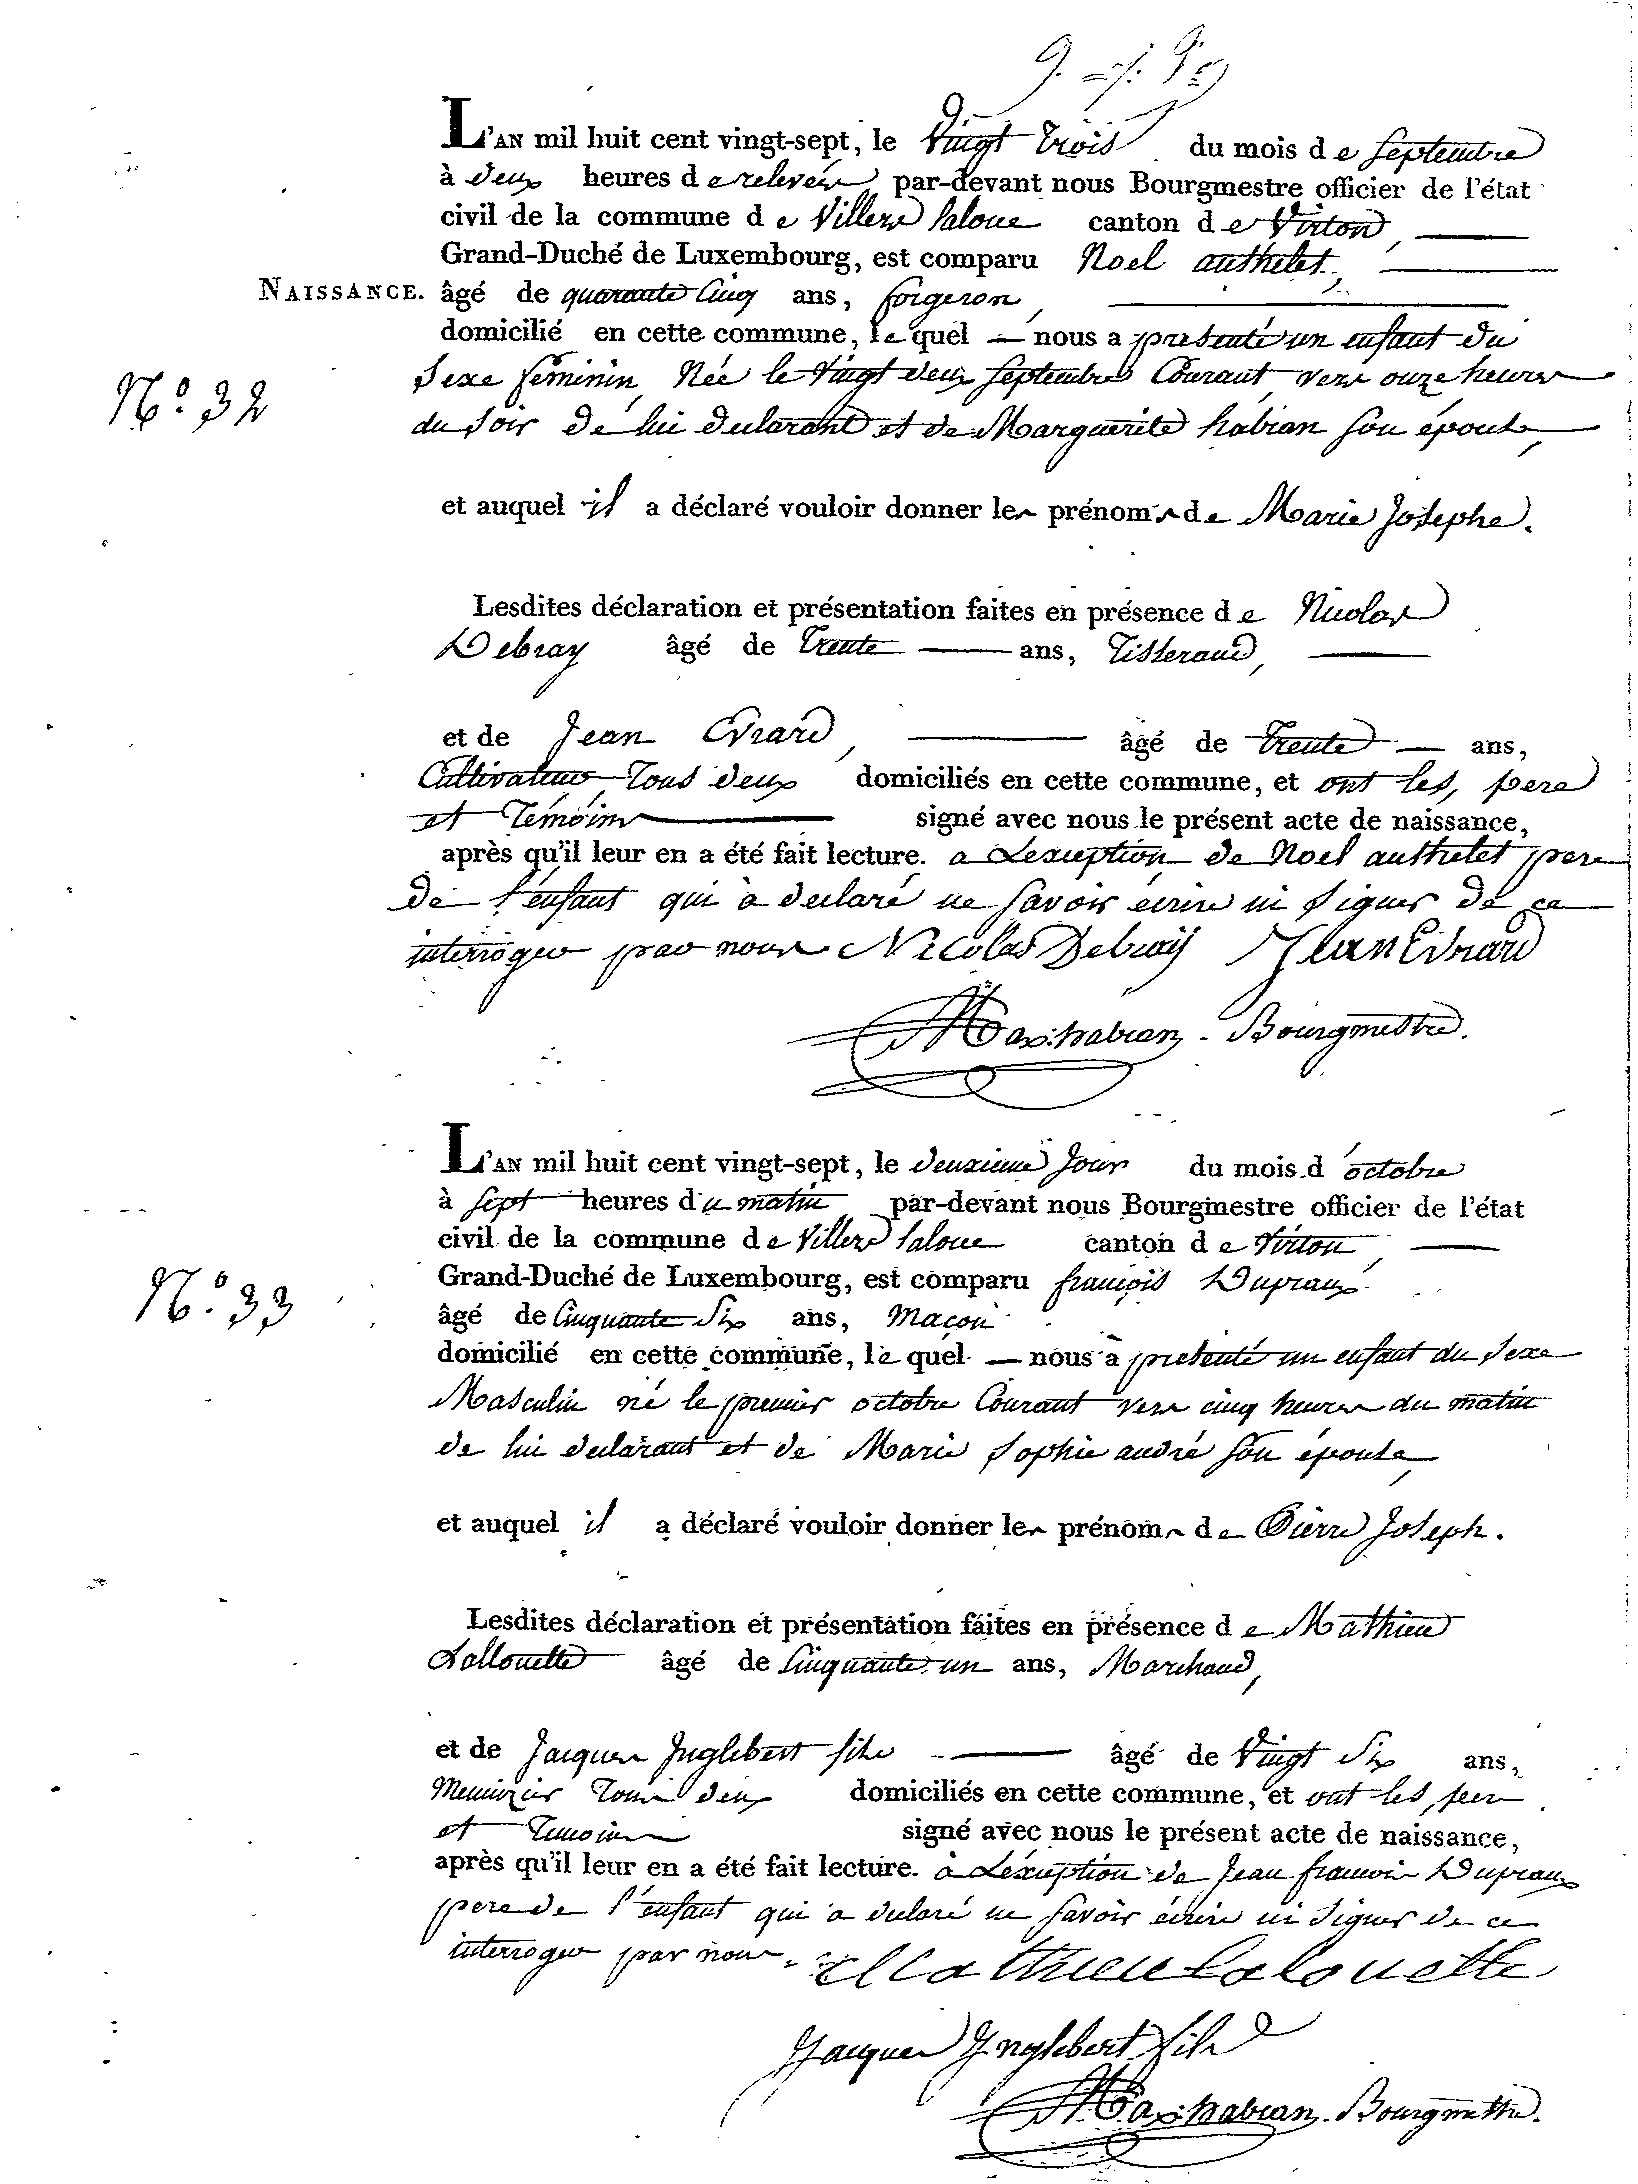 L'AN mil huit cent vingt-sept, le Vingt trois du mois de Septembre
à deux heures de relevée par-devant nous Bourgmestre officier de l'état
civil de la commune de Villers laloue canton de Virton,
Grand-Duché de Luxembourg, est comparu Noel authelet,
NAISSANCE. âgé de quarante Cinq ans, forgeron,
domicilié en cette commune, le quel — nous a presenté un enfant du
N.º 32
Sexe féminin, Née le Vingt deux Septembre Courant vers onze heures
du Soir de lui declarant et de Marguerite habran Son épouse,
et auquel il a déclaré vouloir donner les prénoms de Marie Josephe.
Lesdites déclaration et présentation faites en présence de Nicolas
Debray âgé de Trente ans, Tisserand,
et de Jean Evrard, âgé de Trente ans,
Cultivateur Tous deux domiciliés en cette commune, et ont les, pere
et Témoins signé avec nous le présent acte de naissance,
après qu'il leur en a été fait lecture. a L'exception de Noel authelet pere
de l'enfant qui à declaré ne Savoir écrire ni Signer de ce
interroger par nous Nicolas Debraÿ Jean Evrard
Max. habran - Bourgmestre.
L'AN mil huit cent vingt-sept, le deuxieme Jour du mois d'octobre
à Sept heures du matin par-devant nous Bourgmestre officier de l'état
civil de la commune de Villers laloue canton de Virton,
N.º 33
Grand-Duché de Luxembourg, est comparu françois Dupraux
âgé de Cinquante Six ans, Maçon
domicilié en cette commune, le quel — nous à presenté un enfant du Sexe
Masculin né le premier octobre Courant vers cinq heures du matin
de lui declarant et de Marie Sophie andré Son épouse,
et auquel il a déclaré vouloir donner les prénoms de Pierre Joseph.
Lesdites déclaration et présentation faites en présence de Mathieu
Lallouette âgé de Cinquante un ans, Marchand,
et de Jacques Inglebert fils âgé de Vingt Six ans,
Menuizier Tous deux domiciliés en cette commune, et ont les, pere
et Temoins signé avec nous le présent acte de naissance,
après qu'il leur en a été fait lecture. à L'éxception de Jean francois Dupraux
pere de l'enfant qui a declaré ne Savoir écrire ni Signer de ce
interroger par nous. Mathieu Lalouette
Jacques Inglebert fils
Max. habran. Bourgmestre.